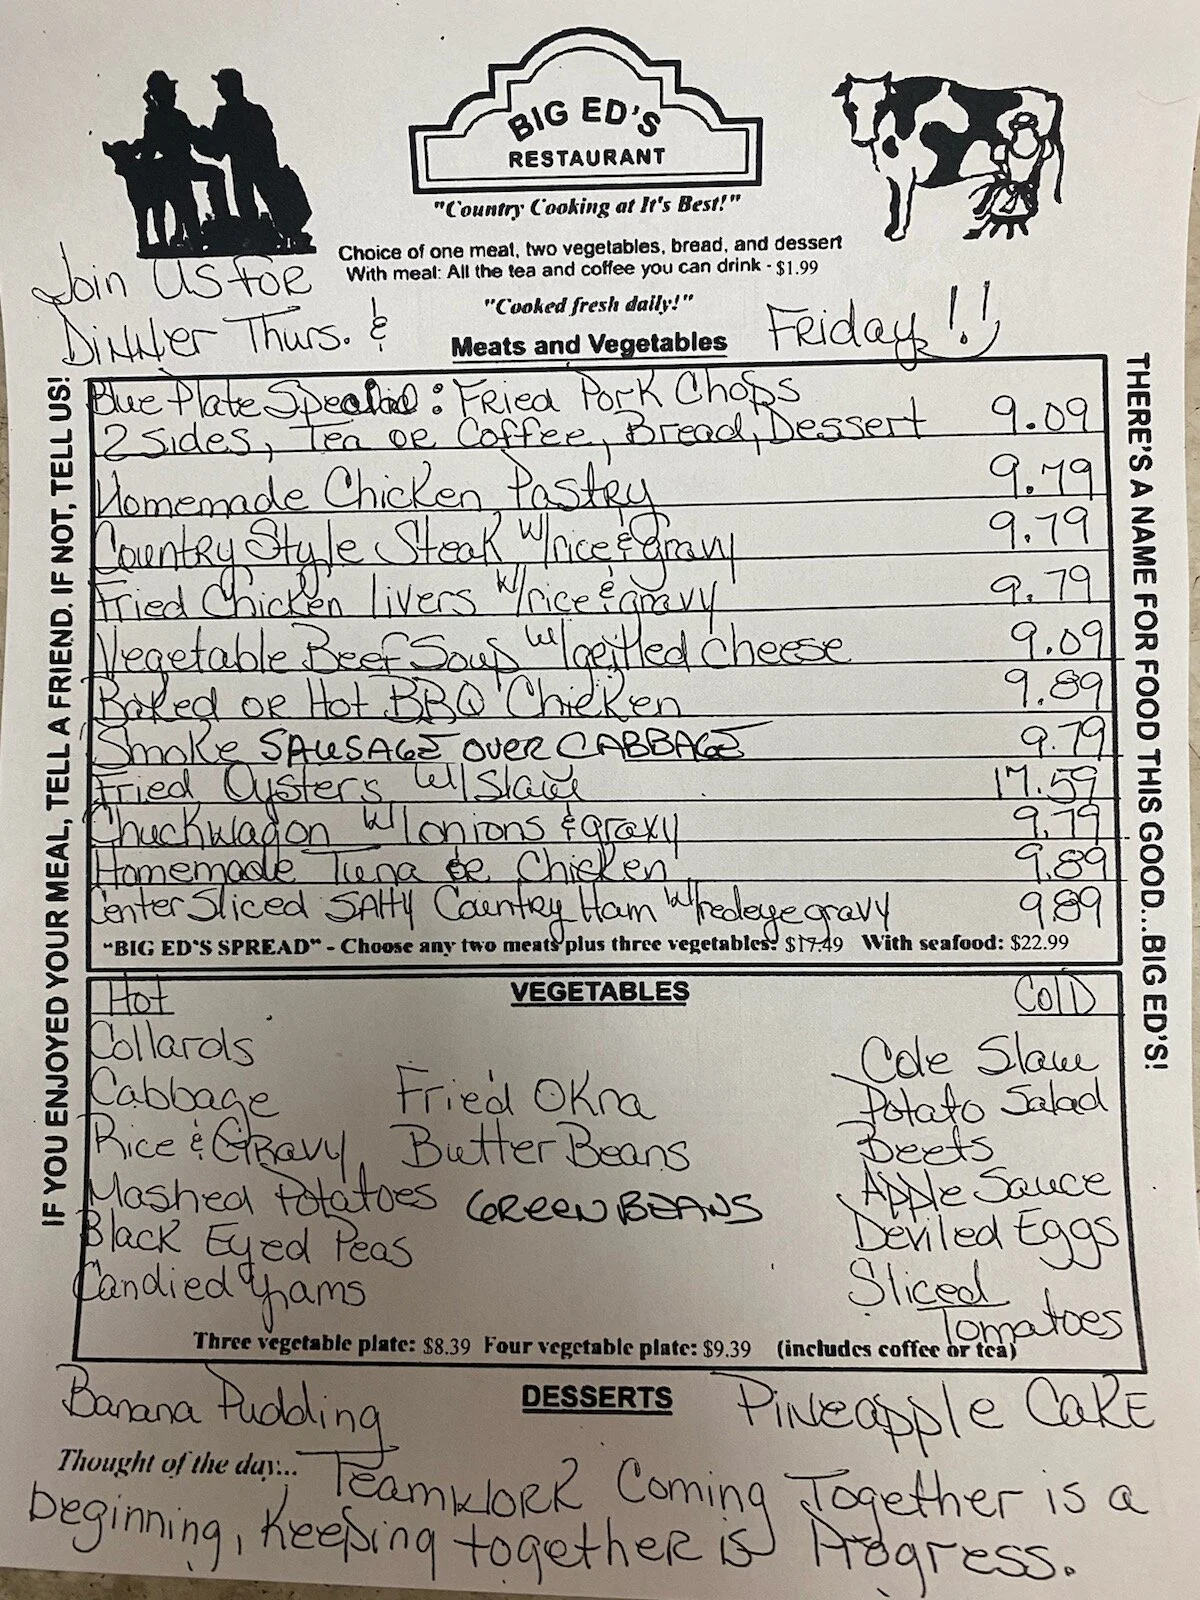 BIG ED'S
RESTAURANT
"Country Cooking at It's Best!"
Choice of one meat, two vegetables, bread, and dessert
With meal: All the tea and coffee you can drink - $1.99
"Cooked fresh daily!"
Join Us For
Dinner Thurs. & Friday!!
Meats and Vegetables
IF YOU ENJOYED YOUR MEAL, TELL A FRIEND. IF NOT, TELL US!
Blue Plate Special: Fried Pork Chops
2 Sides, Tea or Coffee, Bread, Dessert 9.09
Homemade Chicken Pastry 9.79
Country Style Steak w/rice & gravy 9.79
Fried Chicken livers w/rice & gravy 9.79
Vegetable Beef Soup w/grilled cheese 9.09
Baked or Hot BBQ Chicken 9.89
Smoke SAUSAGE OVER CABBAGE 9.79
Fried Oysters w/Slaw 17.59
Chuckwagon w/onions & gravy 9.79
Homemade Tuna or Chicken 9.89
Center Sliced SAlty Country Ham w/redeye gravy 9.89
"BIG ED'S SPREAD" - Choose any two meats plus three vegetables: $17.49 With seafood: $22.99
THERE'S A NAME FOR FOOD THIS GOOD...BIG ED'S!
Hot VEGETABLES Cold
Collards
Cabbage
Rice & Gravy
Mashed Potatoes
Black Eyed Peas
Candied Yams
Fried Okra
Butter Beans
GREEN BEANS
Cole Slaw
Potato Salad
Beets
Apple Sauce
Deviled Eggs
Sliced
Tomatoes
Three vegetable plate: $8.39 Four vegetable plate: $9.39 (includes coffee or tea)
Banana Pudding DESSERTS Pineapple Cake
Thought of the day... Teamwork Coming Together is a
beginning, Keeping together is Progress.